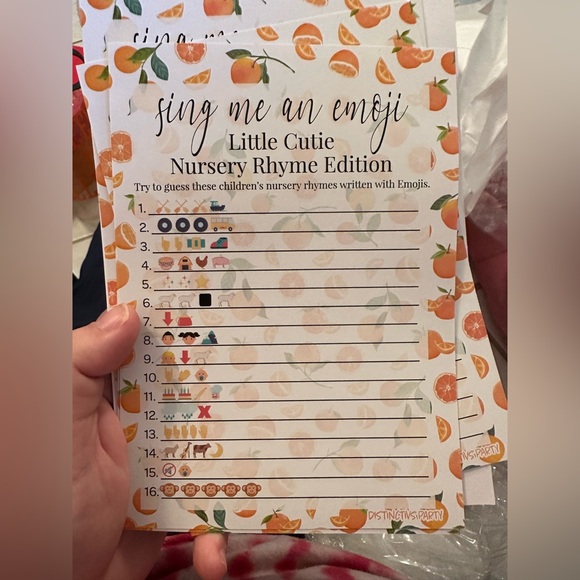 sing me an emoji
sing me an emoji
Little Cutie
Nursery Rhyme Edition
Try to guess these children's nursery rhymes written with Emojis.
1.
2.
3.
4.
5.
6.
7.
8.
9.
10.
11.
12.
13.
14.
15.
16.
DISTINCTIVS PARTY
PARTY